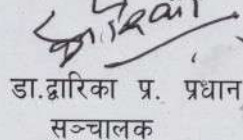 डा.द्वारिका प्र. प्रधान
सञ्चालक